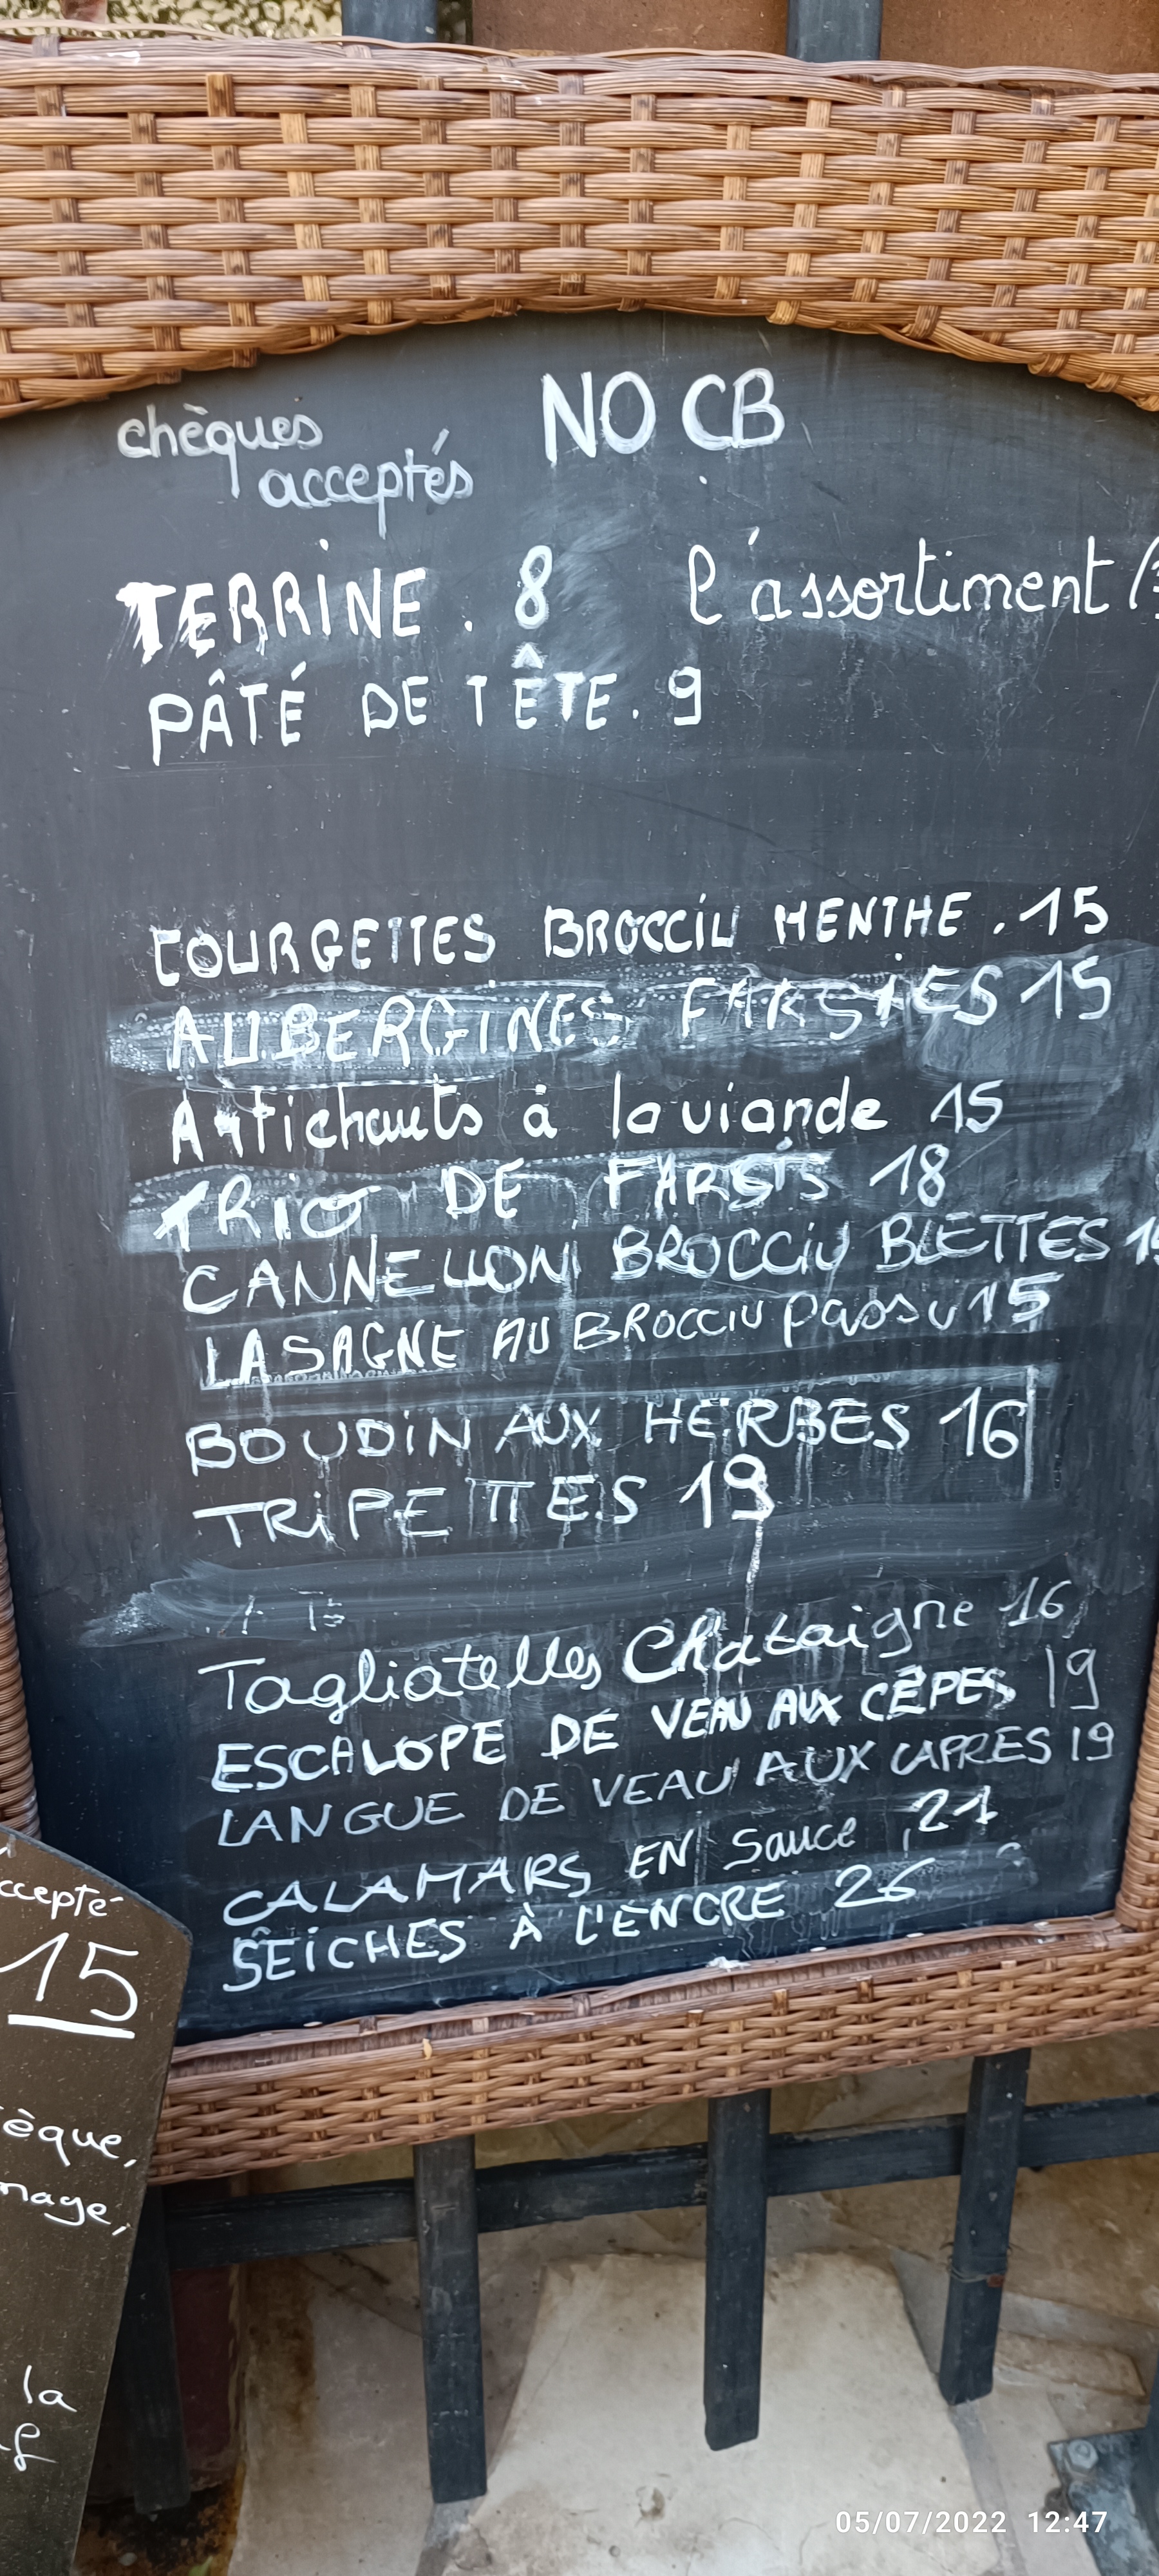 chèques
acceptés
NO CB
TERRINE . 8 l'assortiment
PÂTÉ DE TÊTE . 9
COURGETTES BROCCIU MENTHE . 15
AUBERGINES FARSIES 15
Artichauts à la viande 15
TRIO DE FARSIS 18
CANNELLONI BROCCIU BLETTES
LASAGNE AU BROCCIU passu 15
BOUDIN AUX HERBES 16
TRIPETTES 19
Tagliatelles Chataigne 16
ESCALOPE DE VEAU AUX CÊPES 19
LANGUE DE VEAU AUX CAPRES 19
CALAMARS EN Sauce 21
SEICHES À L'ENCRE 26
ccepté
15
èque,
mage,
la
05/07/2022 12:47